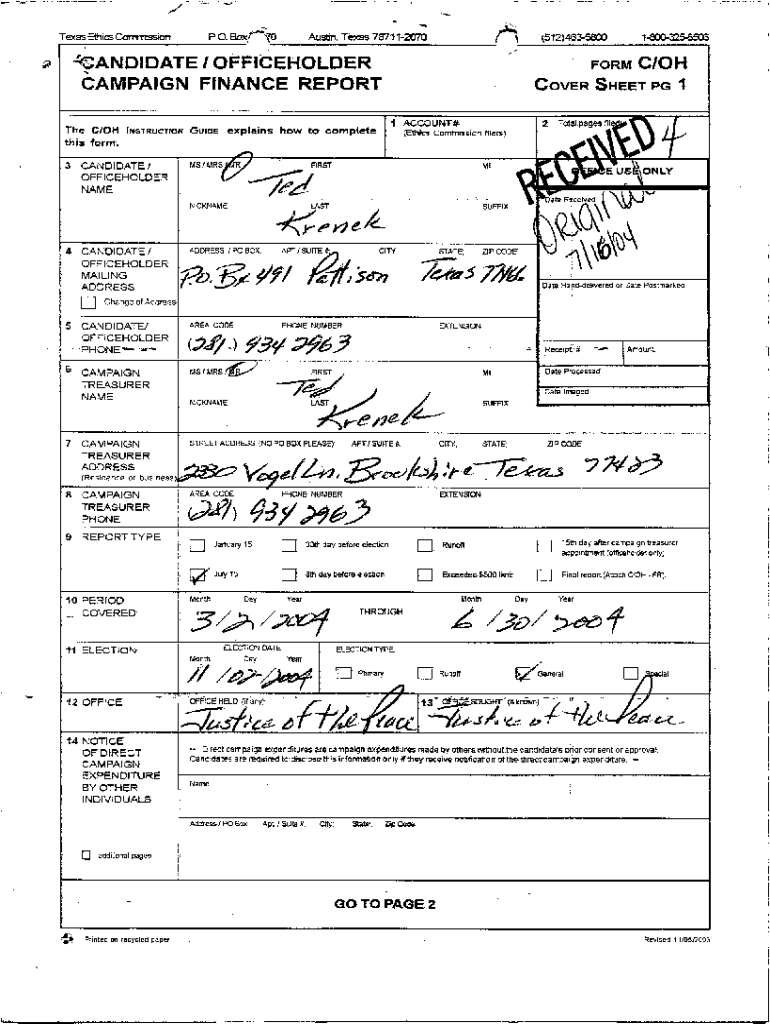 Texas Ethics Commission P.O. Box 70 Austin, Texas 78711-2070 (512)463-5800 1-800-325-8506
CANDIDATE / OFFICEHOLDER FORM C/OH
CAMPAIGN FINANCE REPORT COVER SHEET PG 1
The C/OH INSTRUCTION GUIDE explains how to complete this form.
1 ACCOUNT #
(Ethics Commission filers)
2 Total pages filed
4
RECEIVED
3 CANDIDATE / OFFICEHOLDER NAME
MS / MRS / MR FIRST MI
Ted
NICKNAME LAST SUFFIX
Krenek
OFFICE USE ONLY
Date Received
Original
7/15/04
4 CANDIDATE / OFFICEHOLDER MAILING ADDRESS
Change of Address
ADDRESS / PO BOX; APT / SUITE #; CITY STATE; ZIP CODE
P.O. Bx 491 Pattison Texas
Date Hand-delivered or Date Postmarked
5 CANDIDATE/ OFFICEHOLDER PHONE
AREA CODE PHONE NUMBER EXTENSION
(281) 934 2963
Receipt # Amount
6 CAMPAIGN TREASURER NAME
MS / MRS / MR FIRST MI
Ted
NICKNAME LAST SUFFIX
Krenek
Date Processed
Date Imaged
7 CAMPAIGN TREASURER ADDRESS
(Residence or business)
STREET ADDRESS (NO PO BOX PLEASE); APT / SUITE #; CITY; STATE; ZIP CODE
2330 Vogel Ln. Brookshire Texas 77423
8 CAMPAIGN TREASURER PHONE
AREA CODE PHONE NUMBER EXTENSION
(281) 934 2963
9 REPORT TYPE
January 15 30th day before election Runoff 15th day after campaign treasurer appointment (officeholder only)
July 15 8th day before election Exceeded $500 limit Final report (Attach C/OH - FR)
10 PERIOD COVERED
Month Day Year Month Day Year
3/2/2004 THROUGH 6/30/2004
11 ELECTION
ELECTION DATE ELECTION TYPE
Month Day Year
11/02/2004 Primary Runoff General Special
12 OFFICE
OFFICE HELD (if any) 13 OFFICE SOUGHT (if known)
Justice of the Peace Justice of the Peace
14 NOTICE OF DIRECT CAMPAIGN EXPENDITURE BY OTHER INDIVIDUALS
additional pages
-- Direct campaign expenditures are campaign expenditures made by others without the candidate's prior consent or approval.
Candidates are required to disclose this information only if they receive notification of the direct campaign expenditure. --
Name
Address / PO Box; Apt. / Suite #; City; State; Zip Code
GO TO PAGE 2
Printed on recycled paper Revised 11/05/2003